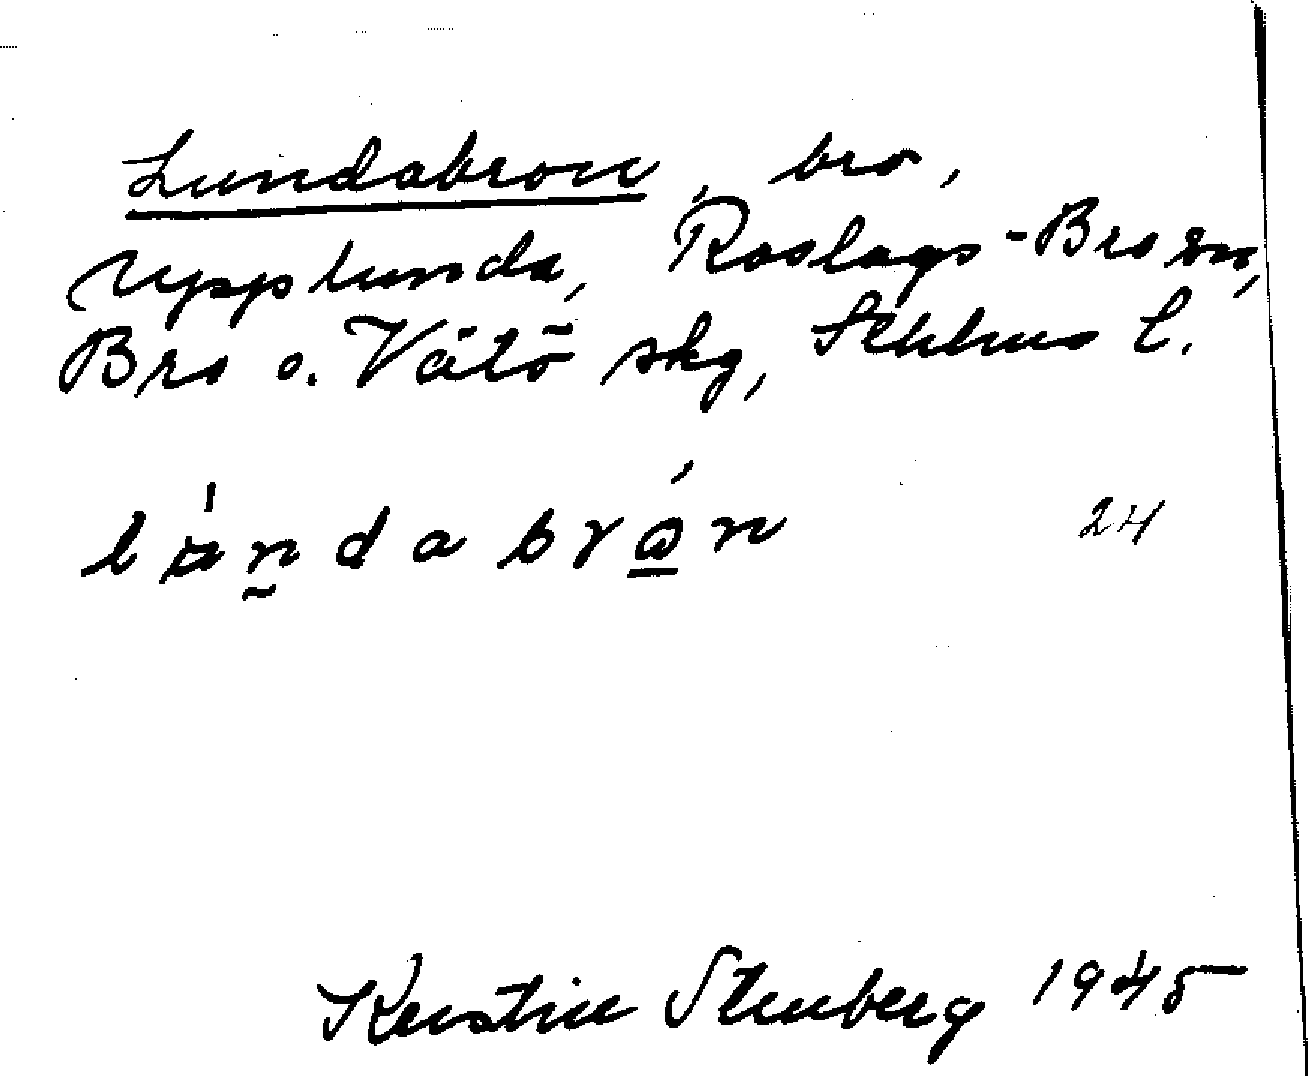 Lundabron, bro,
Upplunda, Roslags-Bro sn,
Bro o. Vätö skg, Sthlms l.
lúndabrån 24
Kerstin Stenberg 1945